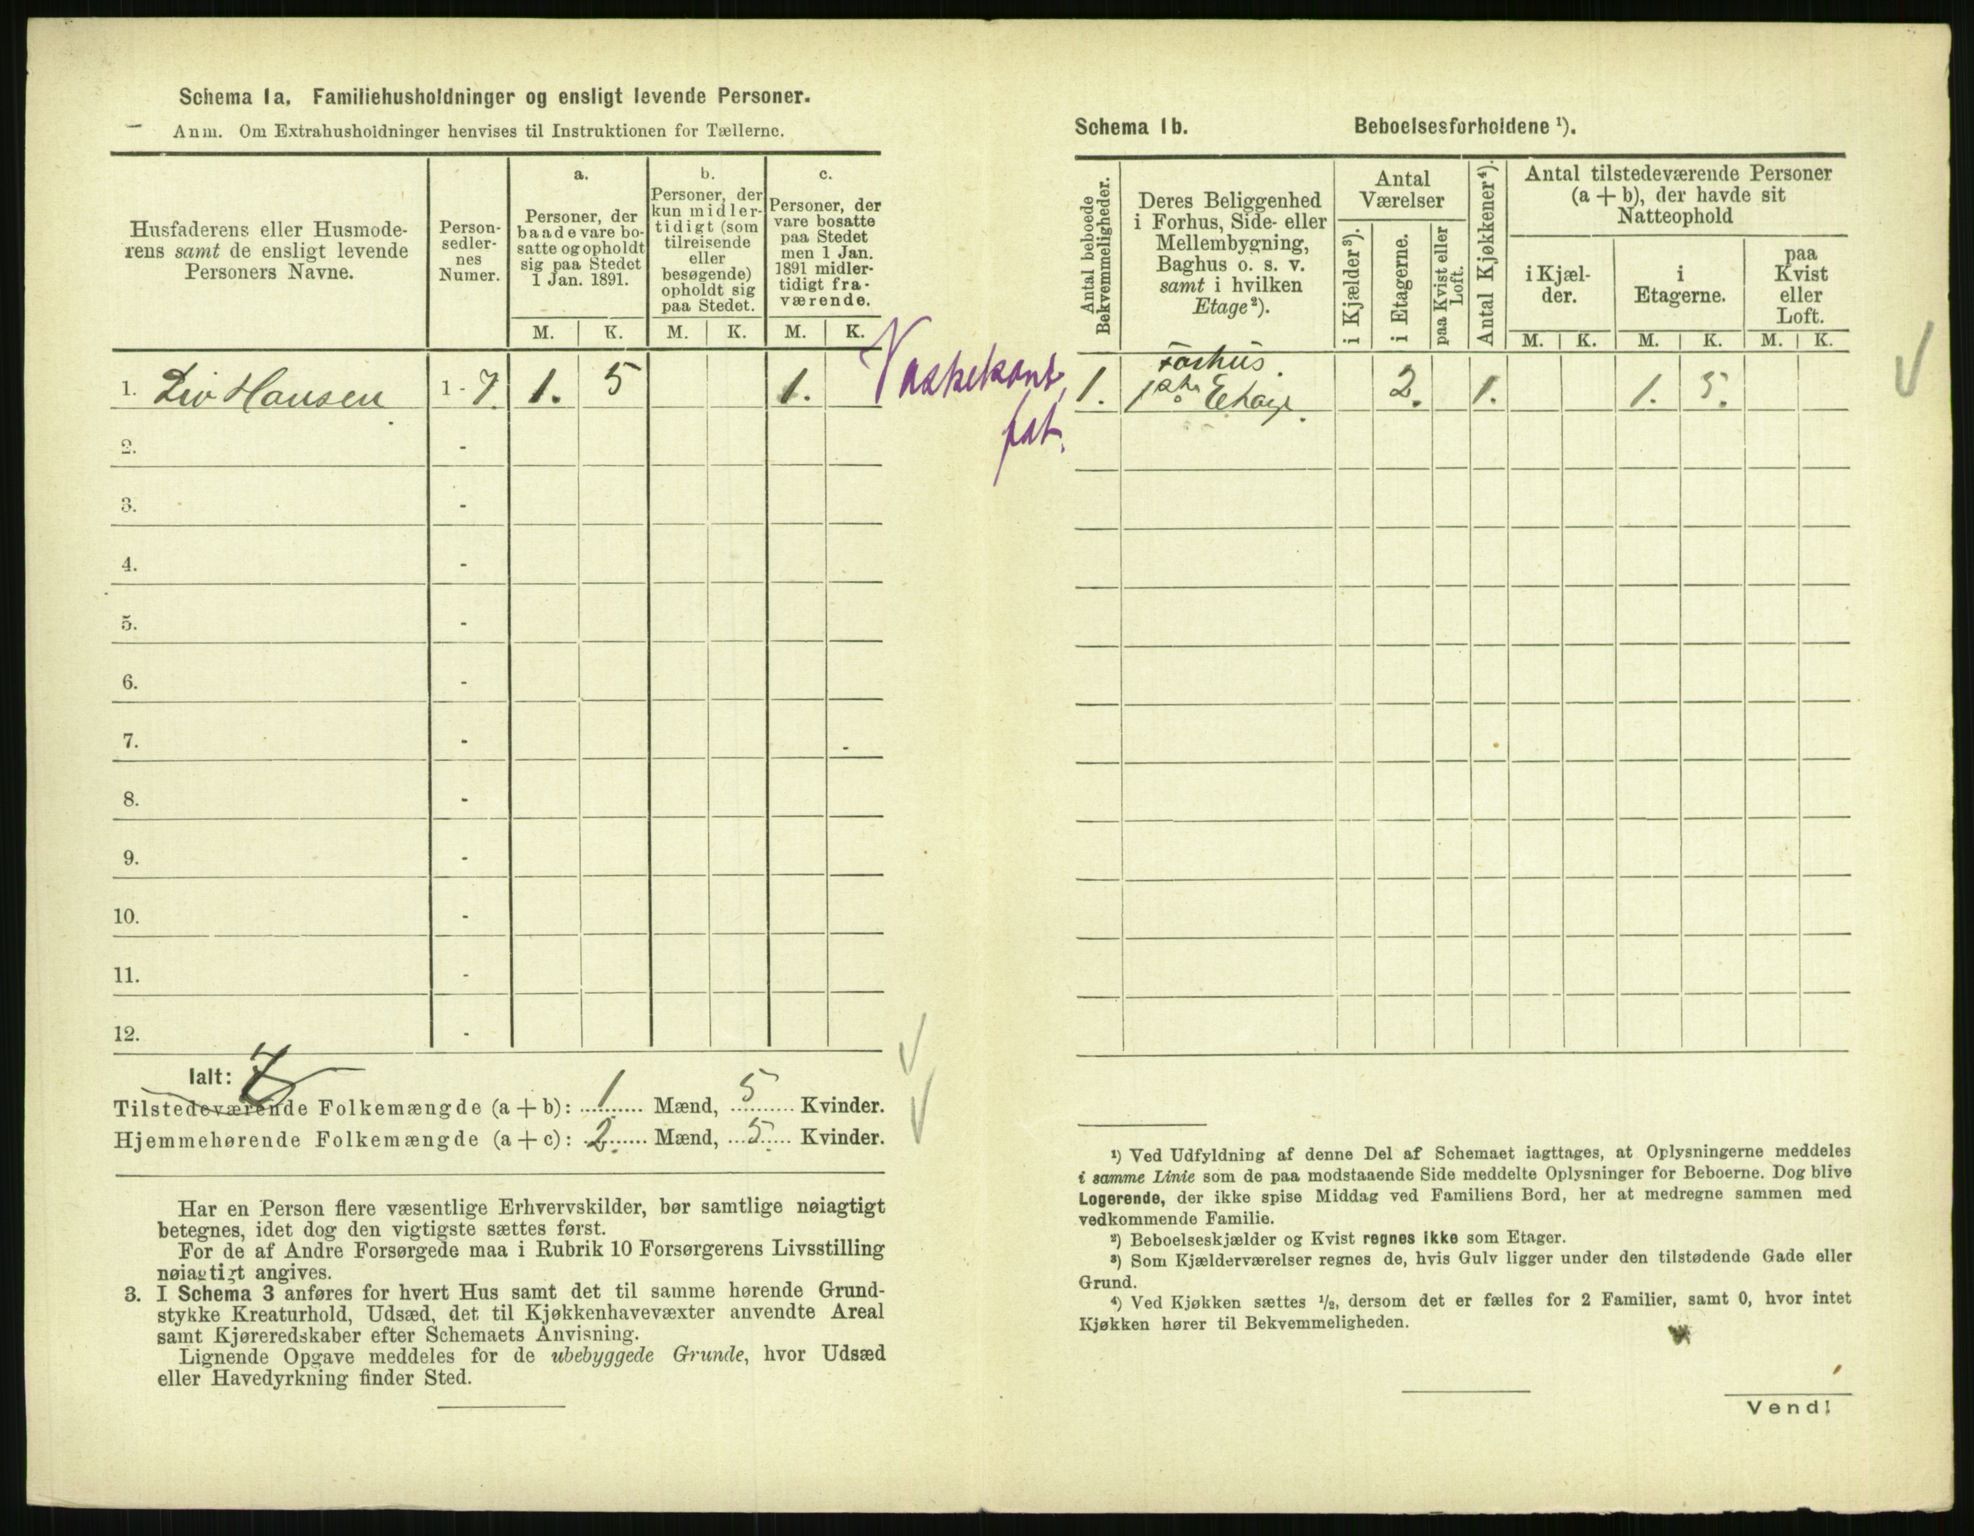 Schema 1a. Familiehusholdninger og ensligt levende Personer.
Anm. Om Extrahusholdninger henvises til Instruktionen for Tællerne.
Husfaderens eller Husmode-
rens samt de ensligt levende
Personers Navne.
Person-
sedler-
nes
Numer.
a.
Personer, der
baade vare bo-
satte og opholdt
sig paa Stedet
1 Jan. 1891.
b.
Personer, der
kun midler-
tidigt (som
tilreisende
eller
besøgende)
opholdt sig
paa Stedet.
c.
Personer, der
vare bosatte
paa Stedet
men 1 Jan.
1891 midler-
tidigt fra-
værende.
M. K. M. K. M. K.
1. Liv Hansen 1 - 7. 1. 5 1.
2. -
3. -
4. -
5. -
6. -
7. -
8. -
9. -
10. -
11. -
12. -
Ialt: 7
Tilstedeværende Folkemængde (a + b): 1 Mænd, 5 Kvinder.
Hjemmehørende Folkemængde (a + c): 2. Mænd, 5. Kvinder.
Har en Person flere væsentlige Erhvervskilder, bør samtlige nøiagtigt
betegnes, idet dog den vigtigste sættes først.
For de af Andre Forsørgede maa i Rubrik 10 Forsørgerens Livsstilling
nøiagtigt angives.
3. I Schema 3 anføres for hvert Hus samt det til samme hørende Grund-
stykke Kreaturhold, Udsæd, det til Kjøkkenhavevæxter anvendte Areal
samt Kjøreredskaber efter Schemaets Anvisning.
Lignende Opgave meddeles for de ubebyggede Grunde, hvor Udsæd
eller Havedyrkning finder Sted.
Schema 1b. Beboelsesforholdene ¹).
Antal beboede
Bekvemmeligheder.
Deres Beliggenhed
i Forhus, Side- eller
Mellembygning,
Baghus o. s. v.
samt i hvilken
Etage²).
Antal
Værelser
i Kjælder³).
i Etagerne.
paa Kvist eller
Loft.
Antal Kjøkkener⁴).
Antal tilstedeværende Personer
(a + b), der havde sit
Natteophold
i Kjæl-
der.
i
Etagerne.
paa
Kvist
eller
Loft.
M. K. M. K. M. K.
Forhus.
1. 1ste Etage. 2. 1. 1. 5.
¹) Ved Udfyldning af denne Del af Schemaet iagttages, at Oplysningerne meddeles
i samme Linie som de paa modstaaende Side meddelte Oplysninger for Beboerne. Dog blive
Logerende, der ikke spise Middag ved Familiens Bord, her at medregne sammen med
vedkommende Familie.
²) Beboelseskjælder og Kvist regnes ikke som Etager.
³) Som Kjælderværelser regnes de, hvis Gulv ligger under den tilstødende Gade eller
Grund.
⁴) Ved Kjøkken sættes ½, dersom det er fælles for 2 Familier, samt 0, hvor intet
Kjøkken hører til Bekvemmeligheden.
Vend!